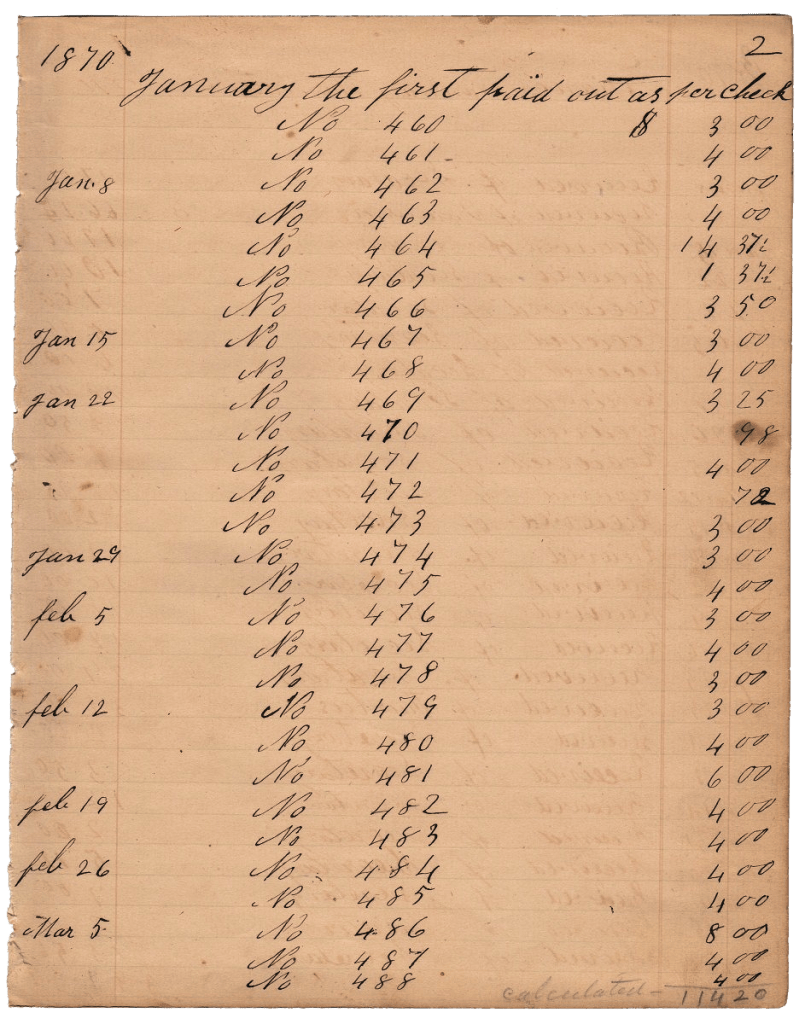 1870 2
January the first paid out as per check
No 460 $ 3 00
No 461 4 00
Jan. 8 No 462 3 00
No 463 4 00
No 464 14 37½
No 465 1 37½
No 466 3 50
Jan 15 No 467 3 00
No 468 4 00
Jan 22 No 469 3 25
No 470 98
No 471 4 00
No 472 72
No 473 3 00
Jan 29 No 474 3 00
No 475 4 00
feb 5 No 476 3 00
No 477 4 00
No 478 3 00
feb 12 No 479 3 00
No 480 4 00
No 481 6 00
feb 19 No 482 4 00
No 483 4 00
feb 26 No 484 4 00
No 485 4 00
Mar 5 No 486 8 00
No 487 4 00
No 488 4 00
calculated - 114 20